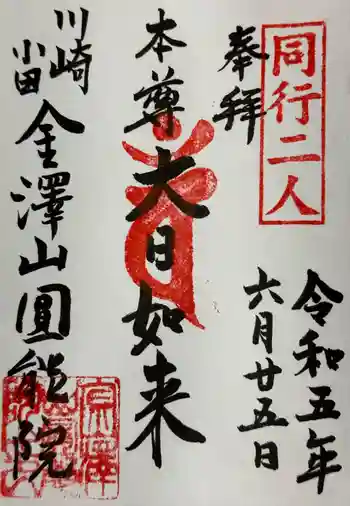 同行二人
奉拝
令和五年
六月廿五日
本尊 大日如来
川崎
小田
金澤山圓能院